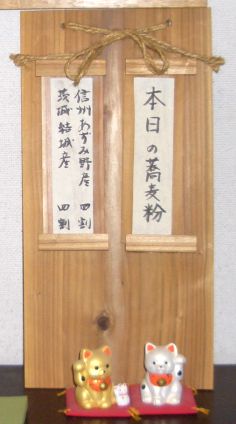 本日の蕎麦粉
信州あずみ野産 四割
茨城結城産 四割